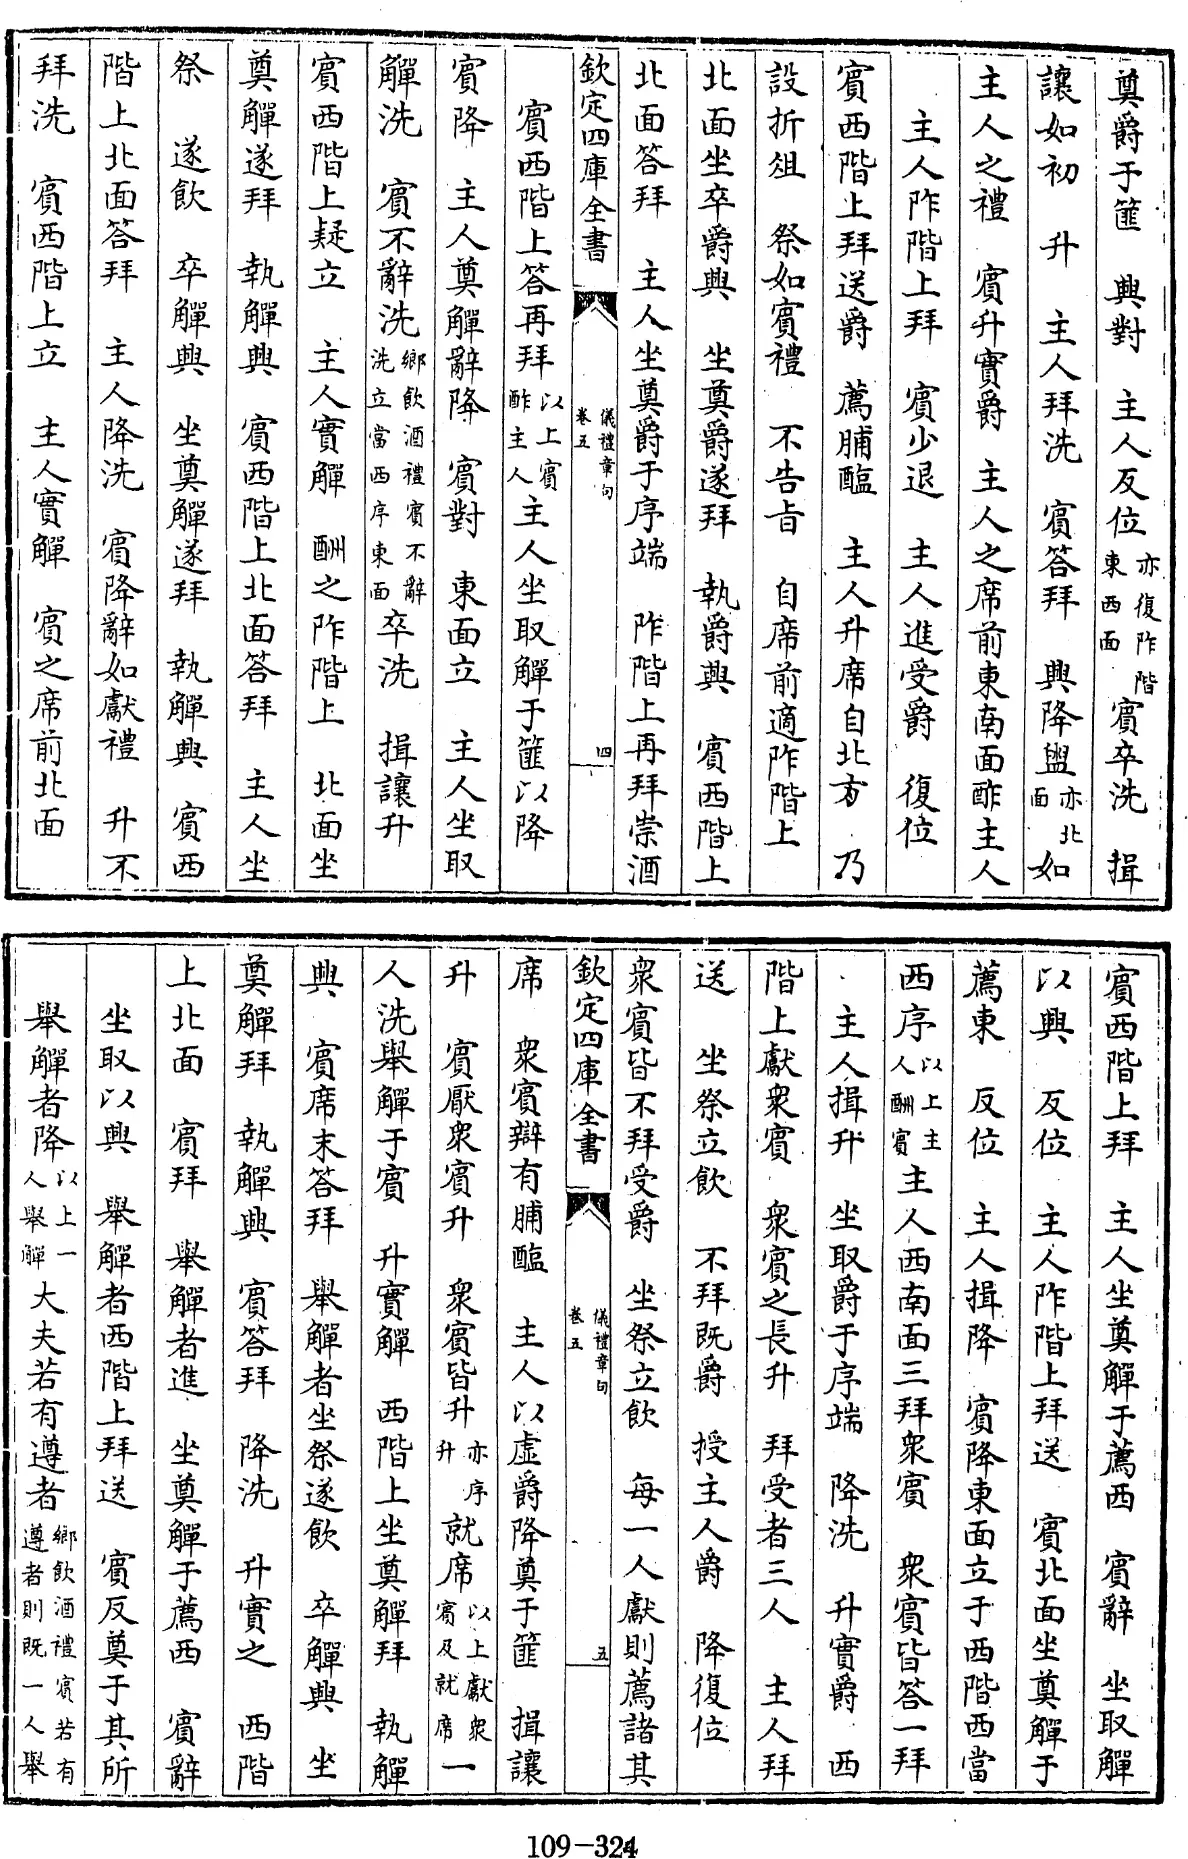 奠爵于篚 興對 主人反位亦復阼階東西面賓卒洗 揖
讓如初 升 主人拜洗 賓答拜 興降盥亦北面如
主人之禮 賓升實爵 主人之席前東南面酢主人
主人阼階上拜 賓少退 主人進受爵 復位
賓西階上拜送爵 薦脯醢 主人升席自北方 乃
設折俎 祭如賓禮 不告旨 自席前適阼階上
北面坐卒爵興 坐奠爵遂拜 執爵興 賓西階上
北面答拜 主人坐奠爵于序端 阼階上再拜崇酒
欽定四庫全書 儀禮章句 卷五 四
賓西階上答再拜以上賓酢主人主人坐取觶于篚以降
賓降 主人奠觶辭降 賓對 東面立 主人坐取
觶洗 賓不辭洗鄉飲酒禮賓不辭洗立當西序東面卒洗 揖讓升
賓西階上疑立 主人實觶 酬之阼階上 北面坐
奠觶遂拜 執觶興 賓西階上北面答拜 主人坐
祭 遂飲 卒觶興 坐奠觶遂拜 執觶興 賓西
階上北面答拜 主人降洗 賓降辭如獻禮 升不
拜洗 賓西階上立 主人實觶 賓之席前北面
賓西階上拜 主人坐奠觶于薦西 賓辭 坐取觶
以興 反位 主人阼階上拜送 賓北面坐奠觶于
薦東 反位 主人揖降 賓降東面立于西階西當
西序以上主人酬賓主人西南面三拜衆賓 衆賓皆答一拜
主人揖升 坐取爵于序端 降洗 升實爵 西
階上獻衆賓 衆賓之長升 拜受者三人 主人拜
送 坐祭立飲 不拜既爵 授主人爵 降復位
衆賓皆不拜受爵 坐祭立飲 每一人獻則薦諸其
欽定四庫全書 儀禮章句 卷五 五
席 衆賓辯有脯醢 主人以虛爵降奠于篚 揖讓
升 賓厭衆賓升 衆賓皆升亦序升就席以上獻衆賓及就席一
人洗舉觶于賓 升實觶 西階上坐奠觶拜 執觶
興 賓席末答拜 舉觶者坐祭遂飲 卒觶興 坐
奠觶拜 執觶興 賓答拜 降洗 升實之 西階
上北面 賓拜 舉觶者進 坐奠觶于薦西 賓辭
坐取以興 舉觶者西階上拜送 賓反奠于其所
舉觶者降以上一人舉觶大夫若有遵者鄉飲酒禮賓若有遵者則既一人舉
109-324